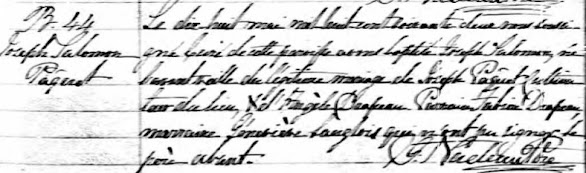 B. 44
Joseph Salomon
Paquet
Le dix huit mai mil huit cent soixante deux nous soussi-
gné Curé de cette paroisse avons baptisé Joseph Salomon, né
la veille du légitime mariage de Joseph Paquet Cultiva-
teur du lieu, & d'Angèle Drapeau Parrain Fabien Drapeau
marraine Geneviève Langlois qui n'ont pu signer le
père absent.